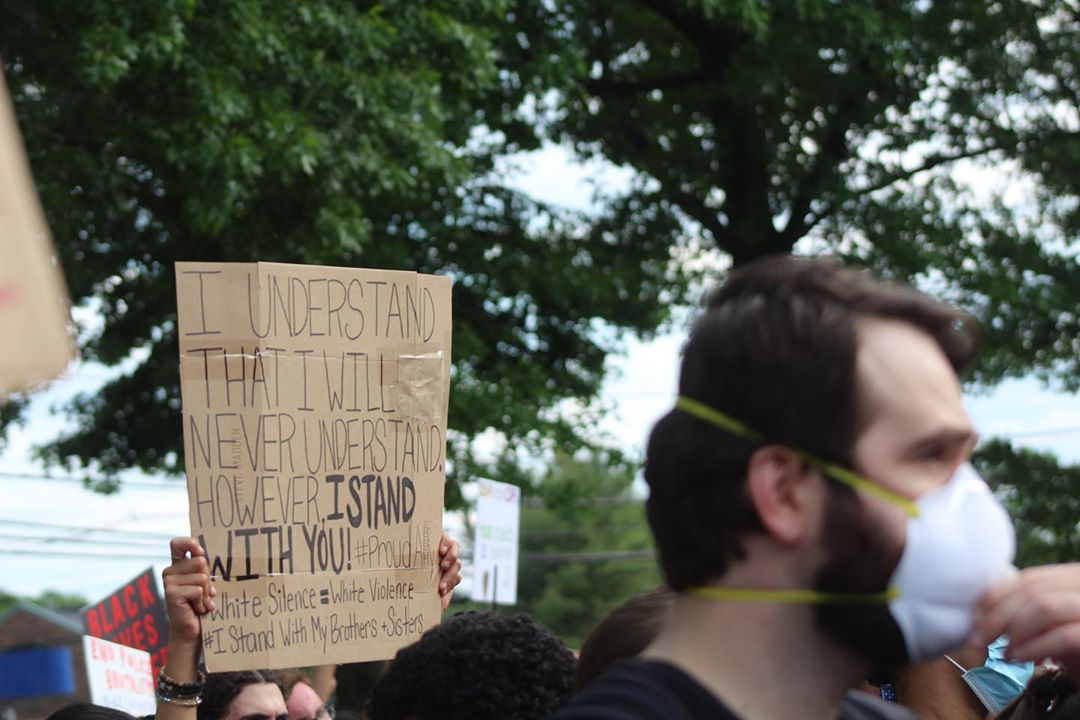 I UNDERSTAND
THAT I WILL
NEVER UNDERSTAND.
HOWEVER, I STAND
WITH YOU! #ProudAlly
White Silence = White Violence
#I Stand With My Brothers + Sisters
STEVE MADDEN
BLACK
LIVES
END POLICE
BRUTALITY